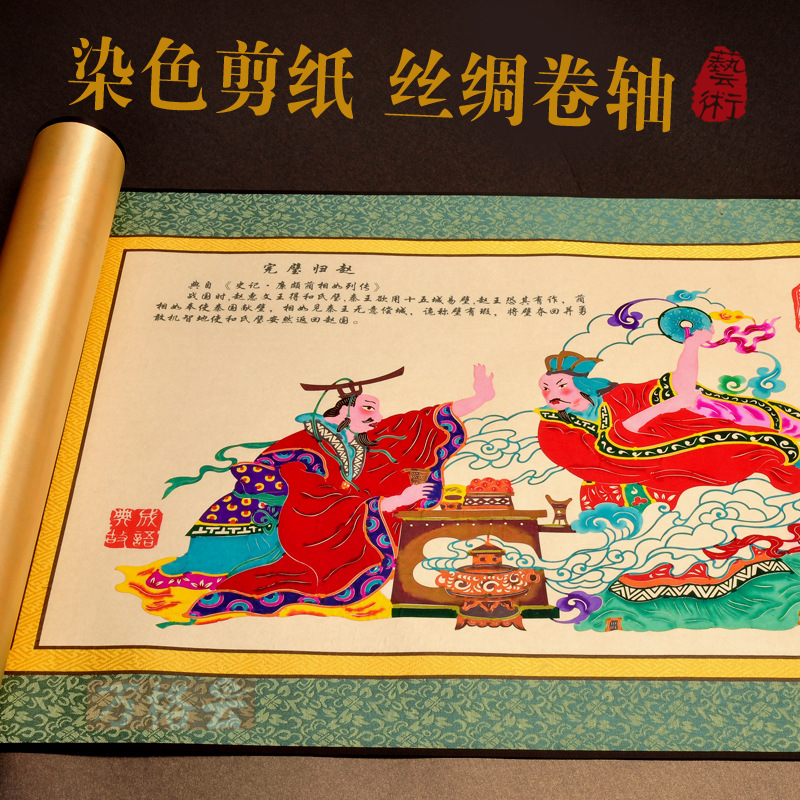 染色剪纸 丝绸卷轴
藝術
完璧归赵
典自《史记·廉颇蔺相如列传》
战国时,赵惠文王得和氏璧,秦王欲用十五城易璧,赵王恐其有诈,蔺
相如奉使秦国献璧,相如见秦王无意偿城,诡称璧有瑕,将璧夺回并勇
敢机智地使和氏璧安然返回赵国。
成語
典故